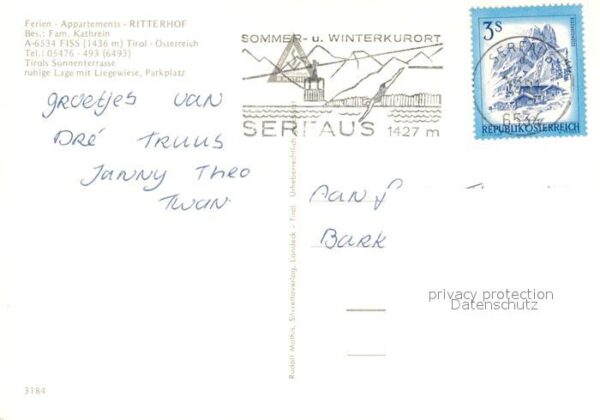 Ferien - Appartements - RITTERHOF
Bes.: Fam. Kathrein
A-6534 FISS (1436 m) Tirol - Österreich
Tel.: 05476 - 493 (6493)
Tirols Sonnenterrasse
ruhige Lage mit Liegewiese, Parkplatz
groetjes van
Dré Truus
Janny Theo
Twan
SOMMER- u. WINTERKURORT
SERFAUS 1427 m
3S
REPUBLIK ÖSTERREICH
SERFAUS
6534
Rudolf Mathis, Silvrettaverlag, Landeck - Tirol. Urheberrechtlich
Aan
Bark
privacy protection
Datenschutz
3184